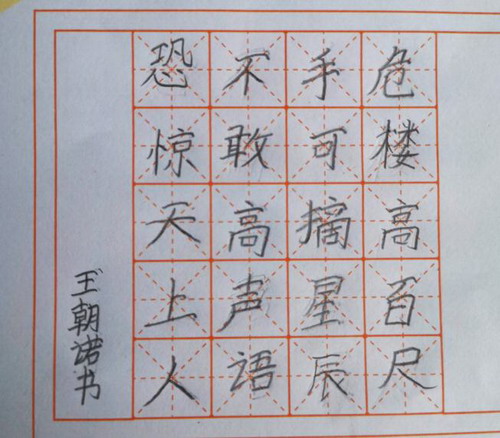 危楼高百尺
手可摘星辰
不敢高声语
恐惊天上人
王朝诺书